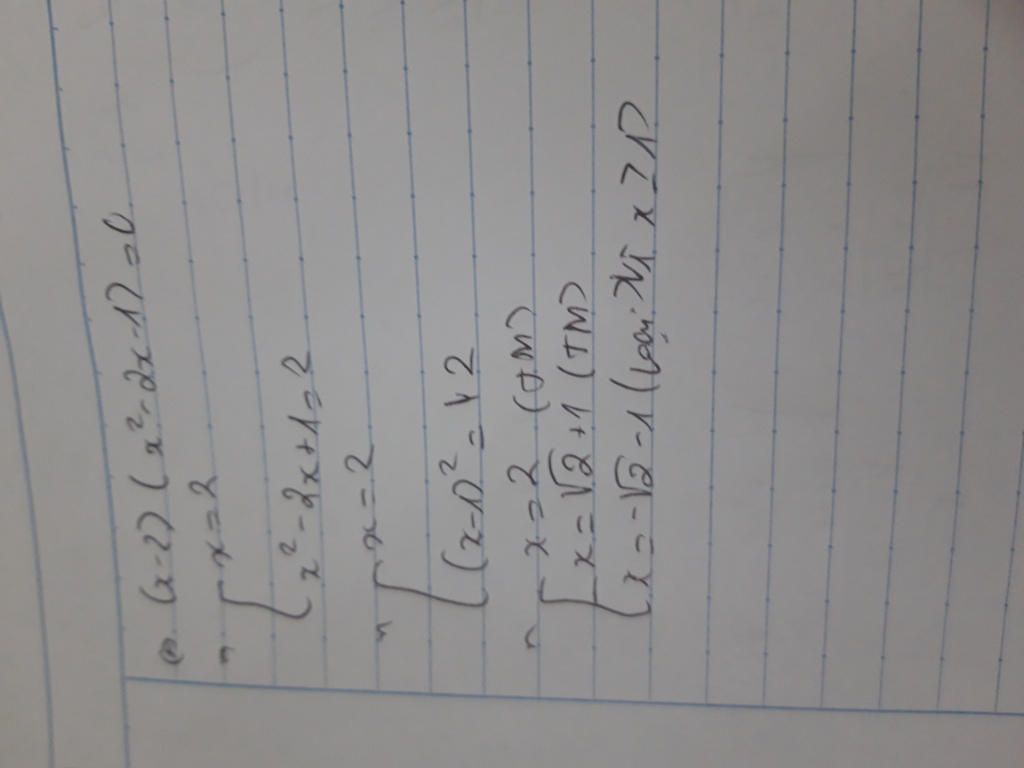 (x-2)(x²-2x-1)=0
x=2
x²-2x+1=2
x=2
(x-1)²=2
x=2 (TM)
x=√2+1 (TM)
x=-√2-1 (loại vì x≥1)